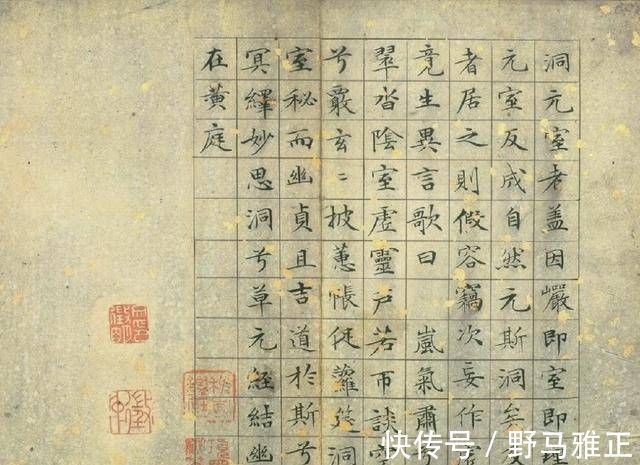 洞元室者盖因巖即室即
元室反成自然元斯洞矣
者居之則假容竊次妄作
竟生異言歌曰 嵐氣肅
翠沓陰室虛靈户若帀談空
兮覈玄〻披蕙帳促蘿筵洞
室秘而幽貞且吉道於斯兮
冥繹妙思洞兮草元經結幽
在黄庭
快传号 / 野马雅正